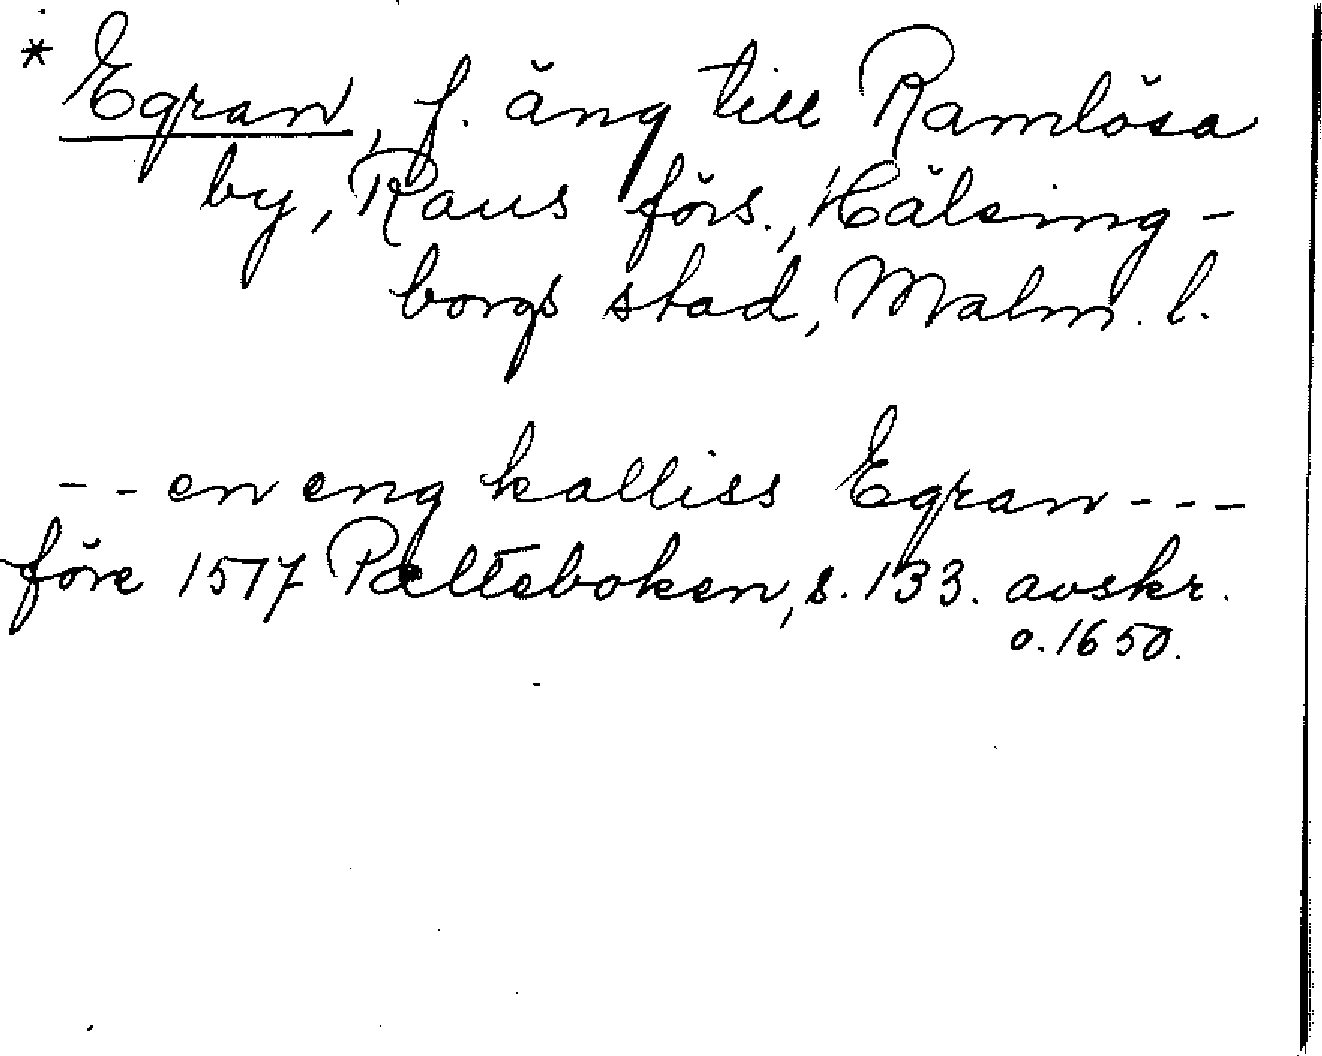 * Egran, f. äng till Ramlösa
by, Raus förs., Hälsing-
borgs stad, Malm. l.
-- en eng kalliss Egran ---
före 1517 Pælteboken, s. 133. avskr.
o. 1650.